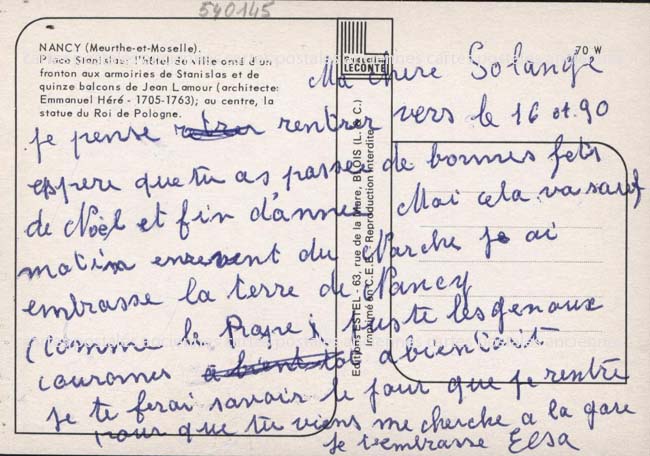 540145
NANCY (Meurthe-et-Moselle).
Place Stanislas: l'hôtel de ville orné d'un
fronton aux armoiries de Stanislas et de
quinze balcons de Jean Lamour (architecte:
Emmanuel Héré - 1705-1763); au centre, la
statue du Roi de Pologne.
LECONTE
70 W
Editions ESTEL - 63, rue de la Mare, BLOIS (L. & C.)
Imprimé en C.E.E. Reproduction interdite
Ma chere Solange
je pense rentrer vers le 16 et 90
espere que tu as passée de bonnes fets
de Noël et fin d'annee Moi cela va sauf
matin enrevent du Marche je ai
embrasse la terre de Nancy
(comme le Pape) juste les genoux
couromes abientoit
je te ferai savoir le jour que je rentre
pour que tu viens me cherche a la gare
je t'embrasse Elsa